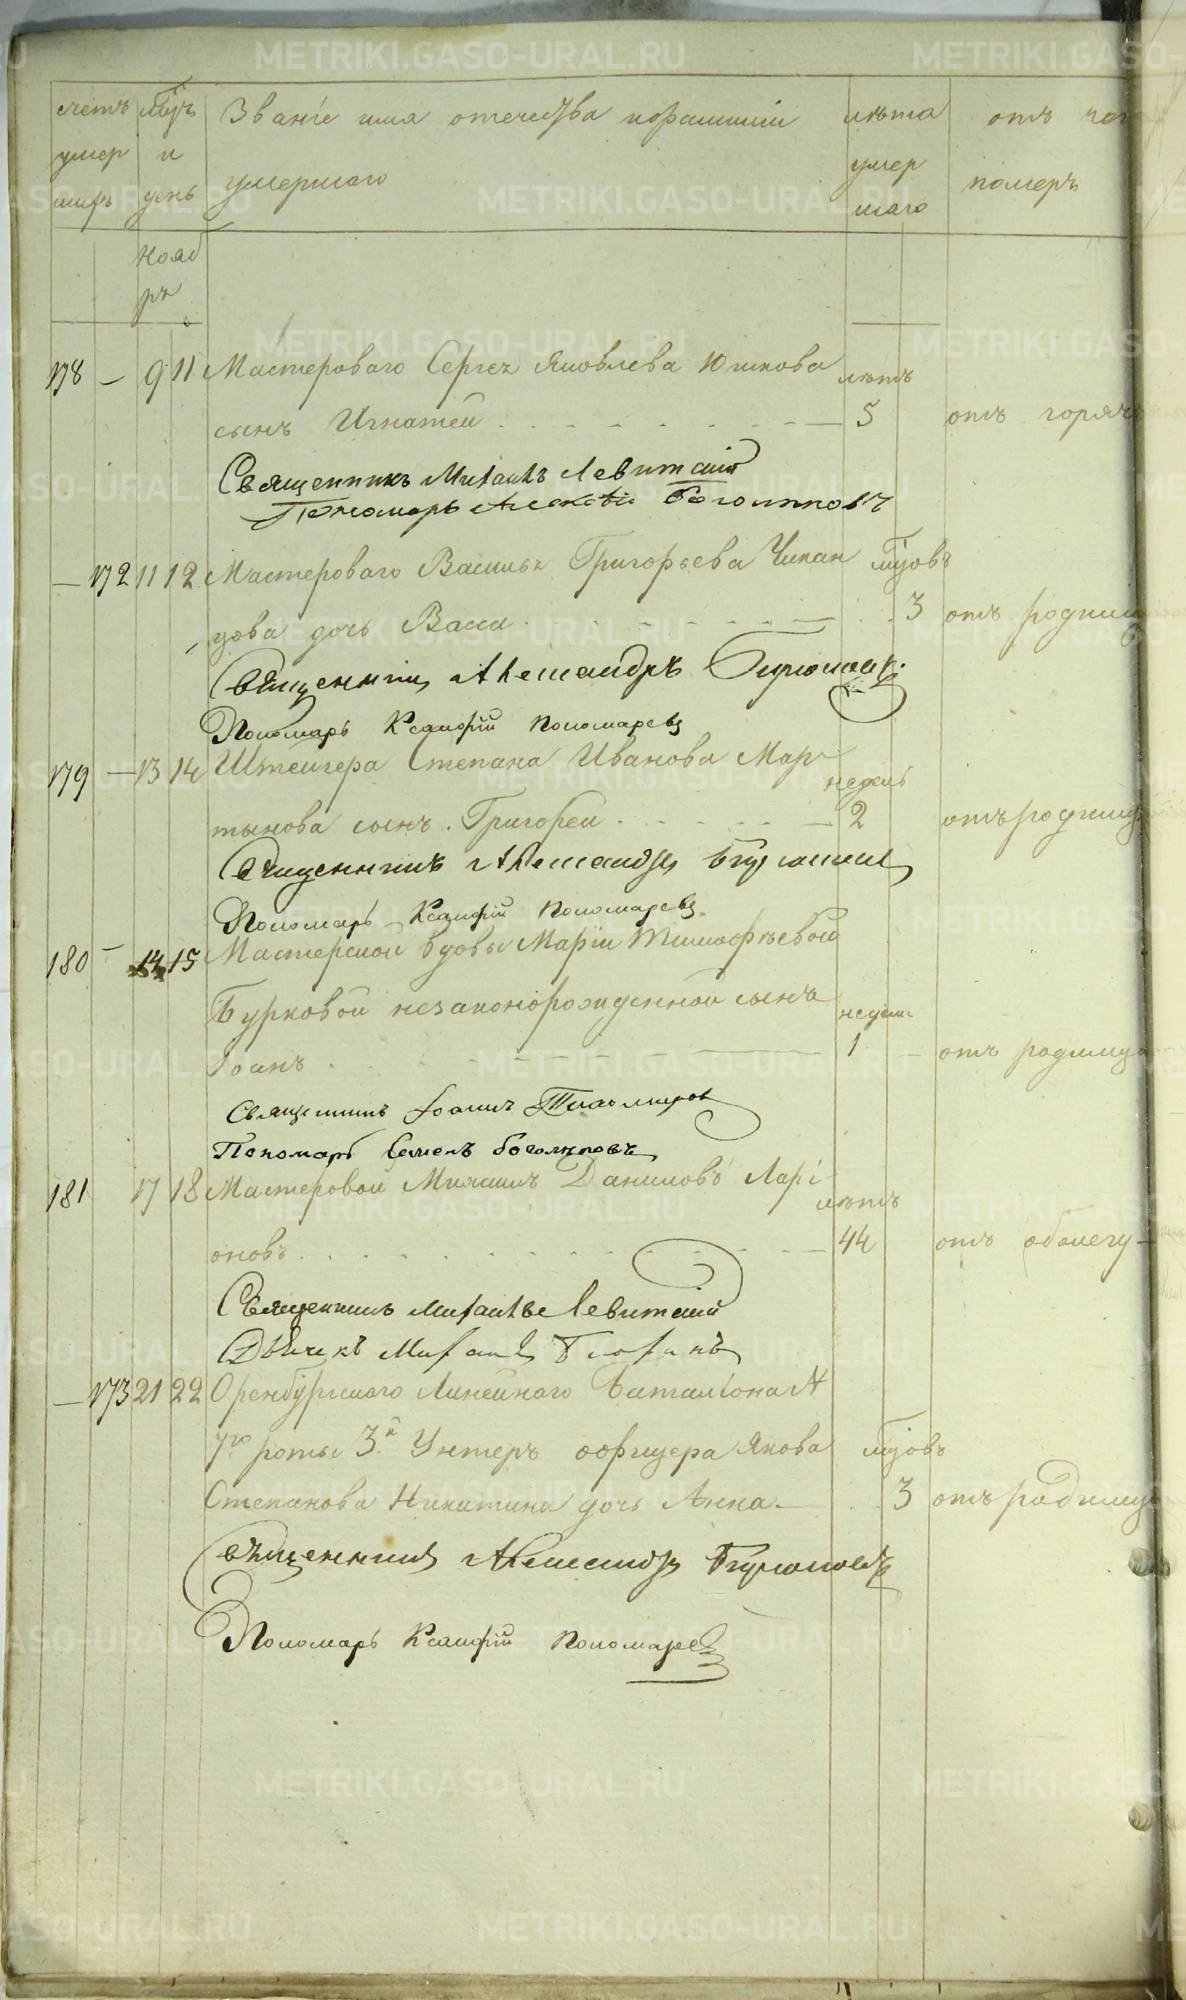 METRIKI.GASO-URAL.RU
счетъ умер шихъ
мцъ и день
Званіе имя отечества и фамиліи
умершаго
лѣта умер шаго
отъ чего
померъ
Нояб
рь
178 — 9 11 Мастероваго Сергея Яковлева Юшкова лѣтъ
сынъ Игнатей 5 отъ горяч
Священникъ Михаилъ Левитскій
Пономарь Алексѣй Боголеповъ
— 172 11 12 Мастероваго Василья Григорьева Чикан мцовъ
цова дочь Васса 3 отъ родимц
Священникъ Александръ
Пономарь Ксанфій Пономаревъ
179 — 13 14 Штейгера Степана Иванова Мар недель
тынова сынъ Григорей 2 отъ родимц
Священникъ Александръ
Пономарь Ксанфій Пономаревъ
180 — 14 15 Мастерской вдовы Маріи Тимофѣевой
Бурковой незаконорожденной сынъ недели
Іоанъ 1 отъ родимца
Священникъ Іоаннъ Тихомировъ
Пономарь Семенъ Боголеповъ
181 17 18 Мастеровой Михаилъ Даниловъ Ларі лѣтъ
оновъ 44 отъ
Священникъ Михаилъ Левитскій
Дьячекъ Михаилъ
— 173 21 22 Оренбургскаго Линейнаго Баталіона №
7го роты 3й Унтеръ оофицера Якова мцовъ
Степанова Никитина дочь Анна — 3 отъ родимца
Священникъ Александръ
Пономарь Ксанфій Пономаревъ